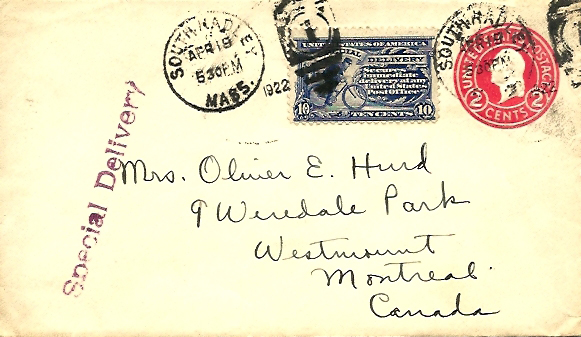 SOUTH HADLEY
APR 18
5 30 PM
MASS.
1922
UNITED STATES OF AMERICA
DELIVERY
Secures
immediate
delivery at any
United States
Post Office
10 TEN CENTS 10
SOUTH HADLEY
2 CENTS 2
Special Delivery
Mrs. Oliver E. Hurd
9 Weredale Park
Westmount
Montreal.
Canada